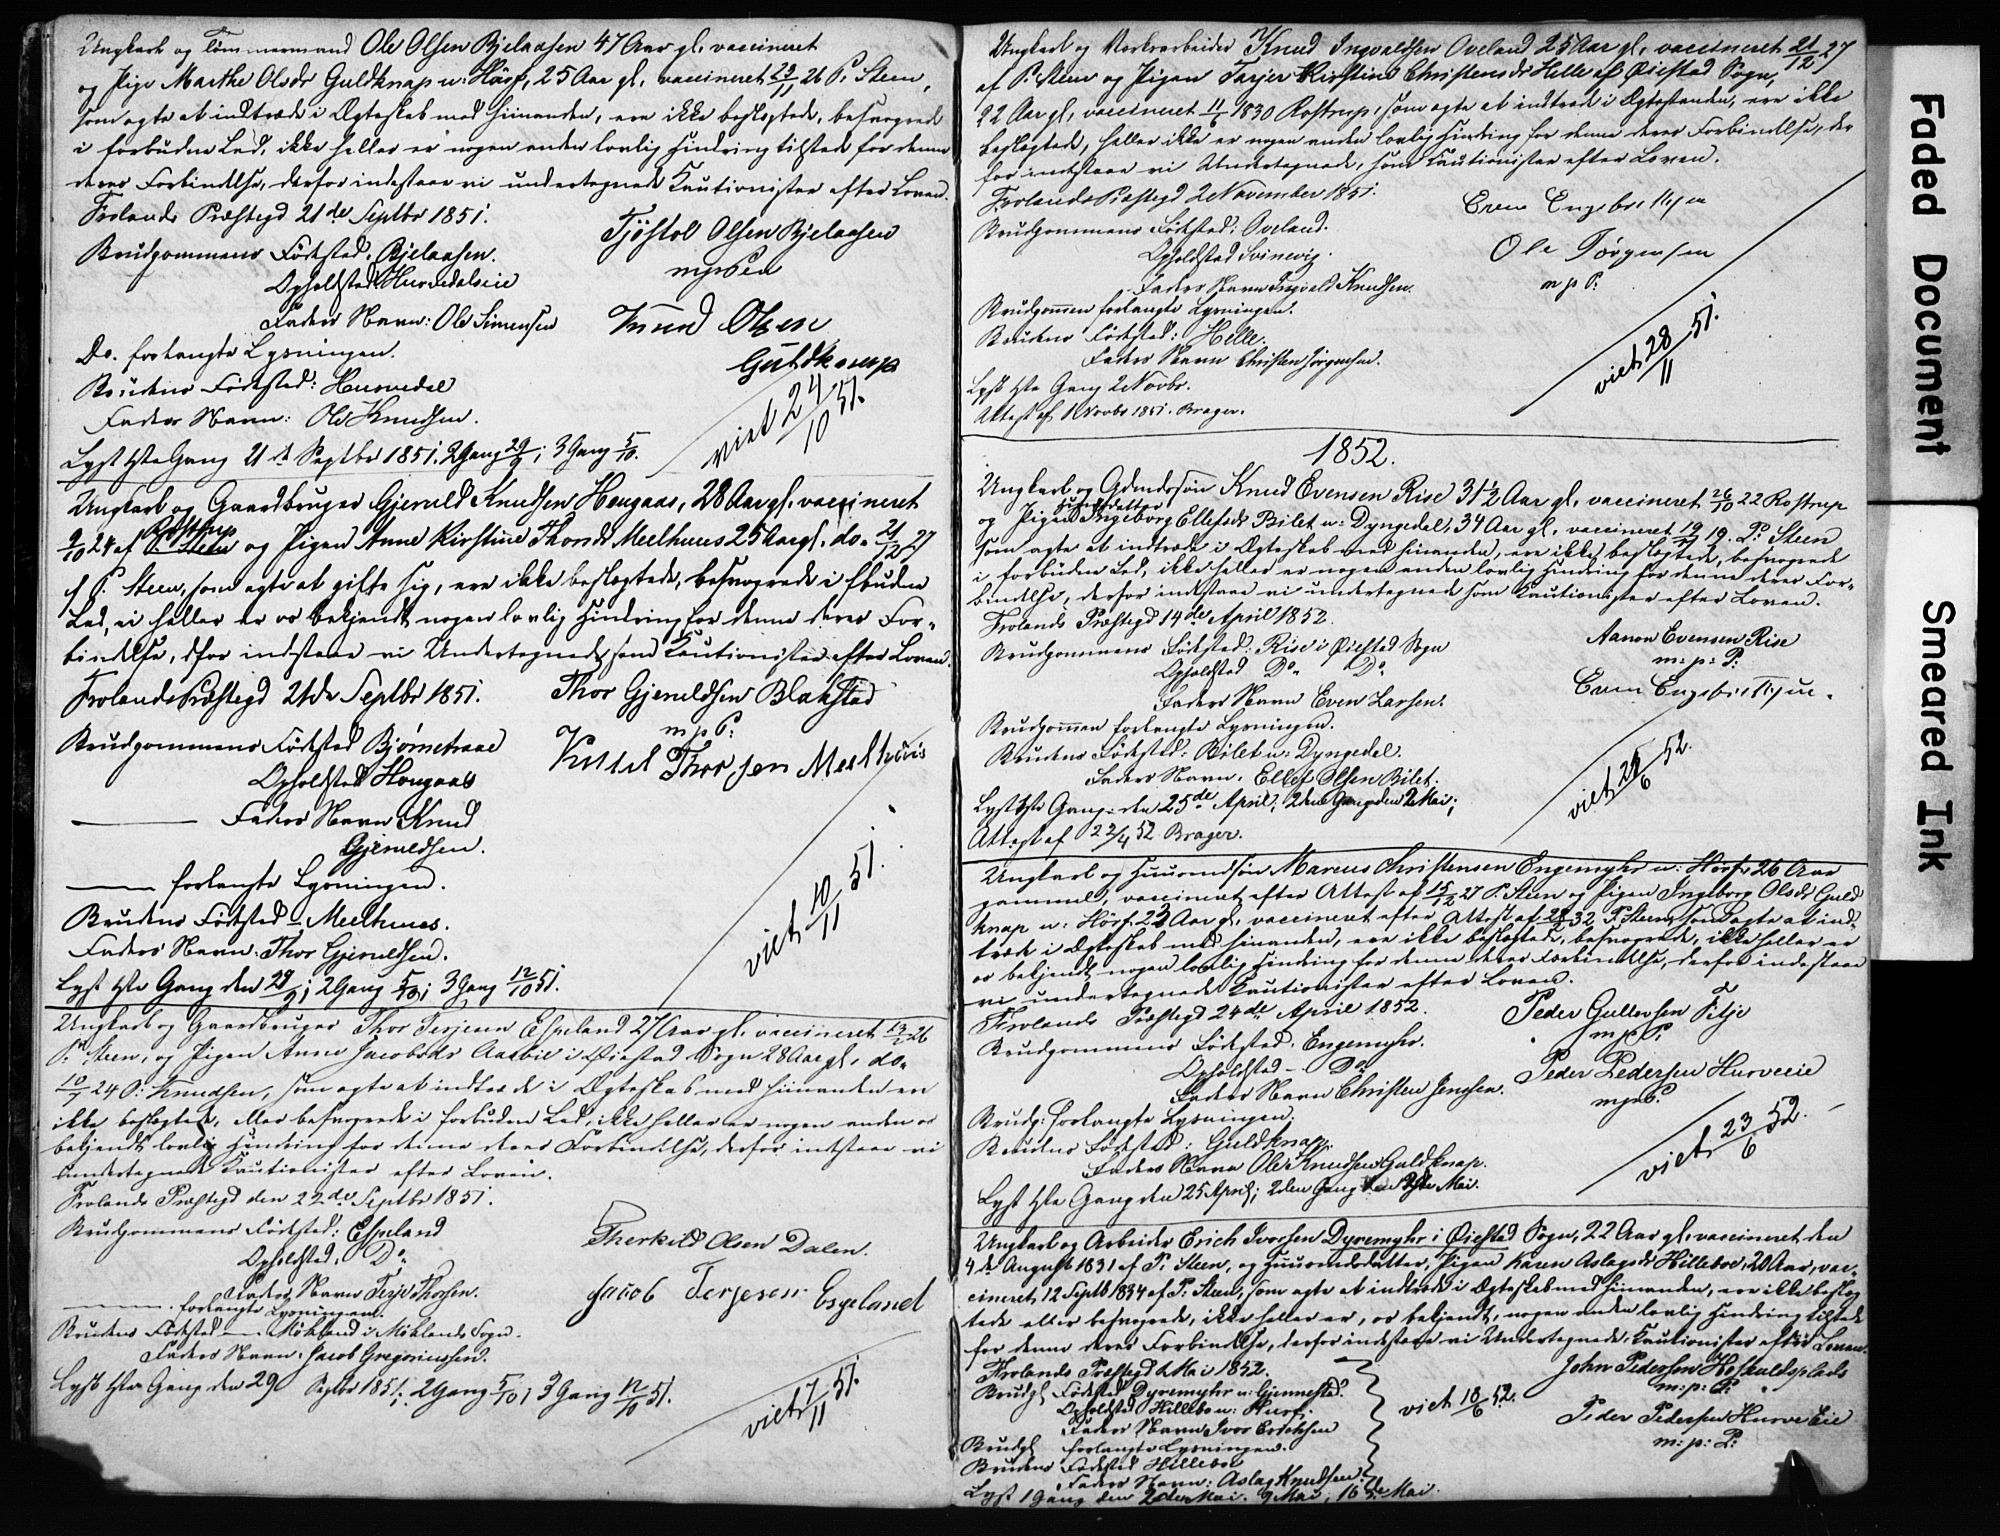 Ungkarl og Tømmermand Ole Olsen Bjelaasen 47 Aar gl. vaccineret
og Pige Marthe Olsdr Guldknap u: Hörf, 25 Aar gl., vaccineret 23/11 26 P. Steen,
som agte at indtræde i Ægteskab med hinanden, ere ikke beslægtede, besvogrede
i forbuden Led, ikke heller er nogen anden lovlig Hindring tilstede for denne
deres Forbindelse, derfor indestaae vi undertegnede Cautionister efter Loven.
Frolands Præstegd 21de Septbr 1851.
Brudgommens Födested, Bjelaasen.
Opholdsted Hurvedalseie
Faders Navn: Ole Simensen
Tjöstol Olsen Bjelaasen
Knud Olsen
Guldknap
Do. forlangte Lysningen.
Brudens Födested: Hurvedal
Faders Navn: Ole Knudsen.
Lyst 1ste Gang 21de Septbr 1851. 2 Gang 29/9; 3 Gang 5/10.
viet 24/10 51.
Ungkarl og Gaardbruger Gjeruld Knudsen Hougaas, 28 Aar gl. vaccineret
9/10 24 af Rostrup og Pigen Anne Kirstine Thorsdr Meelhuus 25 Aar gl. do. 21/12 27
af P. Steen, som agte at gifte sig, ere ikke beslægtede, besvogrede i fbuden
Led, ei heller er os bekjendt nogen lovlig Hindring for denne deres For-
bindelse, dfor indstaae vi Undertegnede som Cautionister efter Loven.
Frolands Præstegd 21de Septbr 1851.
Thor Gjeruldsen Blakstad
m. p. P:
Brudgommens Födested Bjørnetraae
Kittel Thorsen Meelhuus
Opholdsted Hougaas
Faders Navn Knud
Gjeruldsen.
forlangte Lysningen.
Brudens Födested - Meelhuus.
Faders Navn. Thor Gjeruldsen.
Lyst 1ste Gang den 29/9; 2 Gang 5/10; 3 Gang 12/10 51.
viet 10/11 51.
Ungkarl og Gaardbruger Thor Terjesen Espeland 27 Aar gl. vaccineret 26
P. Steen, og Pigen Anne Jacobsdr Aasbie i Øiestad Sogn 28 Aar gl. do.
24 P: Knudsen, som agte at indtræde i Ægteskab med hinanden er
ikke beslægtede, eller besvogrede i forbuden Led, ikke heller er nogen anden os
bekjendt lovlig Hindring for denne deres Forbindelse, derfor indstaae vi
undertegnede Cautionister efter Loven.
Frolands Præstegd den 22de Septbr 1851.
Brudgommens Födested: Espeland
Opholdsted, Do
Therkild Olsen Dalen.
Faders Navn Terje Thorsen.
Jacob Terjesen Espeland
forlangte Lysningen.
Brudens Födested Møkland i Møklands Sogn.
Faders Navn: Jacob Gregoriussen.
Lyst 1ste Gang den 29 Septbr 1851; 2 Gang 5/10; 3 Gang 12/10 51.
viet 7/11 51.
Ungkarl og Værksarbeider Knud Ingvaldsen Oveland 25 Aar gl. vaccineret 21/12 27
af P. Steen og Pigen Tarjer Kirstine Christensdr Helle af Øiestad Sogn,
22 Aar gl., vaccineret 11/6 1830 Rostrup, som agte at indtræde i Ægtestanden, ere ikke
beslægtede, heller ikke er nogen anden lovlig Hindring for denne deres Forbindelse, der
for indstaae vi Undertegnede, som Cautionister efter Loven.
Frolands Præstegd 2 November 1851.
Even Engebretsen
Brudgommens Födested: Oveland.
Opholdsted Svinevig.
Ole Jørgensen
m p P.
Faders Navn Ingvald Knudsen.
Brudgommen forlangte Lysningen.
Brudens Födested: Helle.
Faders Navn Christen Jørgensen.
Lyst 1ste Gang 2 Novbr.
Attest af 1 Novbr 1851. Brager.
viet 28/11 51.
1852.
Ungkarl og Gdmdssön Knud Evensen Rise 31½ Aar gl. vaccineret 26/10 22 Rostrup
og Pigen Ingeborg Ellefsdr Bilet u: Dyngedal, 34 Aar gl., vaccineret 19. P. Steen
som agte at indtræde i Ægteskab med hinanden, ere ikke beslægtede, besvogrede
i forbuden Led, ikke heller er nogen anden lovlig Hindring for denne deres For-
bindelse, derfor indstaae vi undertegnede som Cautionister efter Loven.
Frolands Præstegd 14de April 1852.
Brudgommens Födested: Rise i Øiestad Sogn
Aanon Evensen Rise
m: p: P:
Opholdsted Do. Do.
Faders Navn Even Larsen.
Even Engebretsen.
Brudgommen forlangte Lysningen.
Brudens Födested: Bilet u: Dyngedal.
Faders Navn. Ellef Olsen Bilet.
Lyst 1ste Gang den 25de April; 2den Gang den 2 Mai;
Attest af 22/4 52 Brager.
viet 52.
Ungkarl og Huusmdsön Marcus Christensen Engemyhr u: Hörf. 26 Aar
gammel, vaccineret efter Attest af 15/12 27 P. Steen og Pigen Ingeborg Olsdr Guld
knap u: Hörf. 23 Aar gl. vaccineret efter Attest af 32 P. Steen, som agte at ind-
træde i Ægteskab med hinanden, ere ikke beslægtede, besvogrede, ikke heller er
os bekjendt nogen lovlig Hindring for denne deres Forbindelse, derfor indestaae
vi undertegnede Cautionister efter Loven.
Frolands Præstegd 24de April 1852.
Peder Gullersen Fitje
m. p. P.
Brudgommens Födested: Engemyhr.
Opholdsted - Do
Peder Pedersen Hurveeie
Faders Navn Christen Jensen.
Brudg: forlangte Lysningen.
Brudens Födested: Guldknap.
Faders Navn Ole Knudsen Guldknap.
Lyst 1ste Gang den 25 April; 2den Gang den 2den Mai.
viet 23/6 52.
Ungkarl og Arbeider Erich Ivorsen Dyremyhr i Øiestad Sogn, 22 Aar gl. vaccineret den
4de August 1831 af P. Steen, og Huusmdsdatter, Pigen Karen Aslagsdr Hilleboe, 20 Aar, vac-
cineret 12 Septb 1834 af P. Steen, som agte at indtræde i Ægteskab med hinanden, ere ikke beslæg
tede eller besvogrede, ikke heller er, os bekjendt, nogen anden lovlig Hindring tilstede
for denne deres Forbindelse, derfor indestaae vi Undertegnede Cautionister efter Loven.
Frolands Præstegd 2 Mai 1852.
John Pedersen Heskuldsplads
m: p: P:
Brudg Födested Dyremyhr u: Gjennestad.
Opholdsted Hilleboe u: Hurf.
viet 18/6 52.
Peder Pedersen Hurve Eie
m: p: P:
Faders Navn Ivor Erichsen
Brudg forlangte Lysningen.
Brudens Födested Hilleboe
Faders Navn: Aslag Knudsen.
Lyst 1 Gang den 2den Mai. 9 Mai, 16de Mai.
Faded Document
Smeared Ink